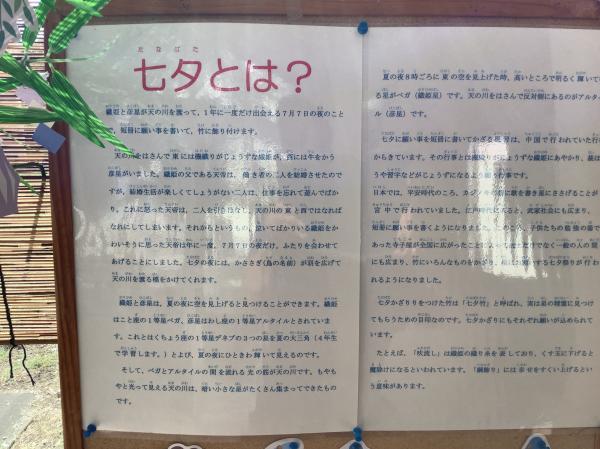 七夕とは？
織姫と彦星が天の川を渡って、1年に一度だけ出会える7月7日の夜のこと
短冊に願い事を書いて、竹に飾り付けます。
天の川をはさんで東には機織りがじょうずな織姫が、西には牛をかう
彦星がいました。織姫の父である天帝は、働き者の二人を結婚させたので
すが、結婚生活が楽しくてしょうがない二人は、仕事を忘れて遊んでばか
り。これに怒った天帝は、二人を引きはなし、天の川の東と西ではなればな
れになれにしてしまいます。それからというもの、泣いてばかりいる織姫をか
わいそうに思った天帝は年に一度、7月7日の夜だけ、ふたりを会わせて
あげることにしました。七夕の夜には、かささぎ(鳥の名前)が羽を広げて
天の川を渡る橋をかけてくれます。
織姫と彦星は、夏の夜に空を見上げると見つけることができます。織姫
はこと座の1等星ベガ、彦星はわし座の1等星アルタイルとされていま
す。これとはくちょう座の1等星デネブの3つの星を夏の大三角(4年生
で学習します。)とよび、夏の夜にひときわ輝いて見えるのです。
そして、ベガとアルタイルの間を流れる光の筋が天の川です。もやも
やと光って見える天の川は、暗い小さな星がたくさん集まってできたもの
です。
夏の夜8時ごろに東の空を見上げた時、高いところで明るく輝いて
る星がベガ(織姫星)です。天の川をはさんで反対側にあるのがアルタイ
ル(彦星)です。
七夕に願い事を短冊に書いてかざる風習は、中国で行われていた行
からきています。その行事とは機織りがじょうずな織姫にあやかり、裁
うや習字などがじょうずになるよう願う行事です。
日本では、平安時代のころ、カジノキの葉に歌を書き星にささげることが
宮中で行われていました。江戸時代に入ると、武家社会にも広まり、
短冊に願い事を書くようになりました。このころ、子供たちの勉強の場で
あった寺子屋が全国に広がったこと 一般の人の間
にも広まり、竹にいろんなものを 七夕祭りが行
れるようになりました。
七夕かざりをつけた竹は「七夕竹」と呼ばれ、
もらうための目印なのです。七夕かざりにもそれぞれ願いが込められて
います。
たとえば、「吹流し」は織姫の織り糸を表しており、くす玉に下げると
魔除けになるといわれています。「網飾り」には幸せをすくい上げるとい
う意味があります。